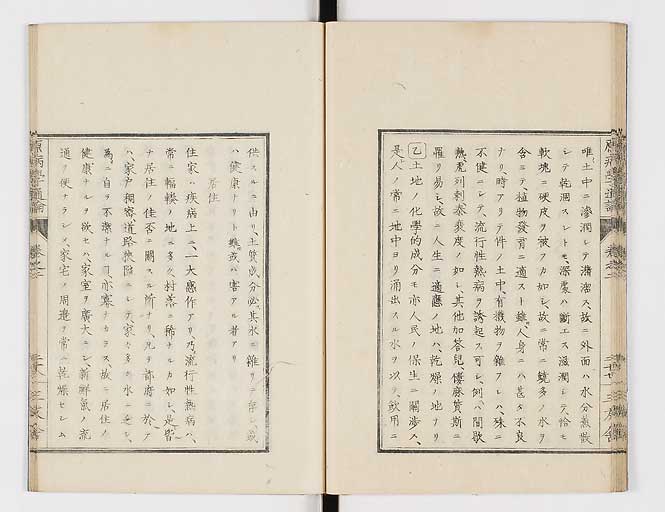 唯土中ニ滲潤シテ瀦溜ス、故ニ外面ハ水分蒸散
シテ乾涸スレトモ、深裏ハ斷エス滋潤シテ、恰モ
軟塊ニ硬皮ヲ被フカ如シ、故ニ常ニ饒多ノ水ヲ
含ミテ、植物發育ニ適スト雖、人身ニハ甚タ不良
ナリ、時アリテ件ノ土中、有機物ヲ雜フレハ、殊ニ
不健ニシテ、流行性熱病ヲ誘起ス可シ、例ハ間歇
熱、虎列剌泰衰度ノ如シ、其他加荅兒、僂麻質斯ニ
罹リ易シ、故ニ人生ニ適應ノ地ハ、乾燥ノ地ナリ
乙土地ノ化學的成分モ亦人民ノ保生ニ關渉ス、
是人ノ常ニ地中ヨリ涌出スル水ヲ以テ、飲用ニ
供スルニ由リ、土質成分必其水ニ雜リテ存シ、或
ハ健康ナリト雖、或ハ害アル者アリ
居住
住家ハ疾病上ニ、一大感作アリ乃流行性熱病ハ、
常ニ輻輳ノ地ニ多ク、村落ニ稀ナルカ如シ、是皆
ナ居住ノ佳否ニ關スル所ナリ、凡ソ都府ニ於テ
ハ、家戸稠密道路狹隘ニシテ、家カ多ク水ニ乏シ、
爲ニ自ラ不潔ナルモ亦寡ナカラス、故ニ居住ノ
健康ナルヲ欲セハ、家室ヲ廣大ニシ、新鮮氣ノ流
通ヲ便ナラシメ、家宅ノ周邊ヲ常ニ乾燥セシム
原病學通論
卷之二
三友舎